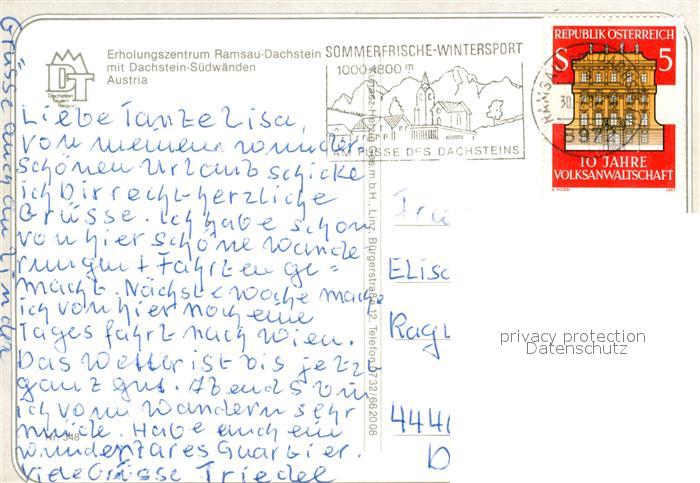 Erholungszentrum Ramsau-Dachstein
mit Dachstein-Südwänden
Austria
DT
Dachstein
Tauern
Region
SOMMERFRISCHE-WINTERSPORT
1000-1800 m
AM FUSSE DES DACHSTEINS
RAMSAU
30.
8972
REPUBLIK ÖSTERREICH
S 5
10 JAHRE
VOLKSANWALTSCHAFT
1987
Liebe Tante Lisa,
von meinem wunder-
schönen Urlaub schicke
ich Dir recht herzliche
Grüsse. Ich habe schon
von hier schöne Wande
rungen + Fahrten ge=
macht. Nächste Woche mache
ich von hier noch eine
Tagesfahrt nach Wien.
Das Wetter ist bis jetzt
ganz gut. Abends bin
ich vom Wandern sehr
müde. Habe auch ein
wunderbares Quartier.
Viele Grüsse Friedel
Grüsse auch an Linden
Ges.m.b.H., Linz, Bürgerstraße 12, Telefon 0732/662008
Nr. 348
Elisa
Ragu
444
D
privacy protection
Datenschutz